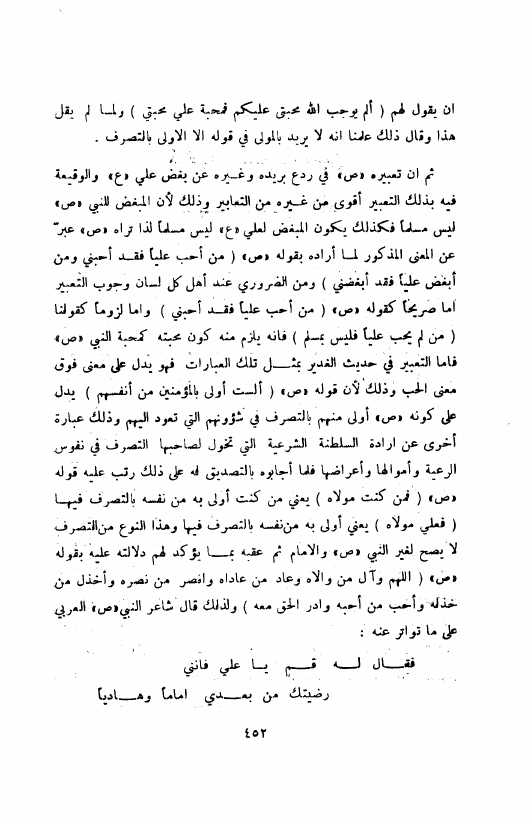 ان يقول لهم ( ألم يوجب الله محبتي عليكم فمحبة علي محبتي ) ولما لم يقل
هذا وقال ذلك علمنا انه لا يريد بالمولى في قوله الا الاولى بالتصرف .
ثم ان تعبيره «ص» في ردع بريده وغيره عن بغض علي «ع» والوقيعة
فيه بذلك التعبير أقوى من غيره من التعابير وذلك لأن المبغض للنبي «ص»
ليس مسلماً فكذلك يكون المبغض لعلي «ع» ليس مسلماً لذا تراه «ص» عبر
عن المعنى المذكور لما أراده بقوله «ص» ( من أحب علياً فقد أحبني ومن
أبغض علياً فقد أبغضني ) ومن الضروري عند أهل كل لسان وجوب التعبير
اما صريحاً كقوله «ص» ( من أحب علياً فقد أحبني ) واما لزوماً كقولنا
( من لم يحب علياً فليس بمسلم ) فانه يلزم منه كون محبته كمحبة النبي «ص»
فاما التعبير في حديث الغدير بمثل تلك العبارات فهو يدل على معنى فوق
معنى الحب وذلك لأن قوله «ص» ( ألست أولى بالمؤمنين من أنفسهم ) يدل
على كونه «ص» أولى منهم بالتصرف في شؤونهم التي تعود اليهم وذلك عبارة
أخرى عن ارادة السلطنة الشرعية التي تخول لصاحبها التصرف في نفوس
الرعية وأموالها وأعراضها فلما أجابوه بالتصديق له على ذلك رتب عليه قوله
«ص» ( فمن كنت مولاه ) يعني من كنت أولى به من نفسه بالتصرف فيها
( فعلي مولاه ) يعني أولى به من نفسه بالتصرف فيها وهذا النوع من التصرف
لا يصح لغير النبي «ص» والامام ثم عقبه بما يؤكد لهم دلالته عليه بقوله
«ص» ( اللهم وآل من والاه وعاد من عاداه وانصر من نصره وأخذل من
خذله وأحب من أحبه وادر الحق معه ) ولذلك قال شاعر النبي «ص» العربي
على ما تواتر عنه :
فقال له قم يا علي فانني
رضيتك من بعدي اماماً وهادياً
٤٥٢